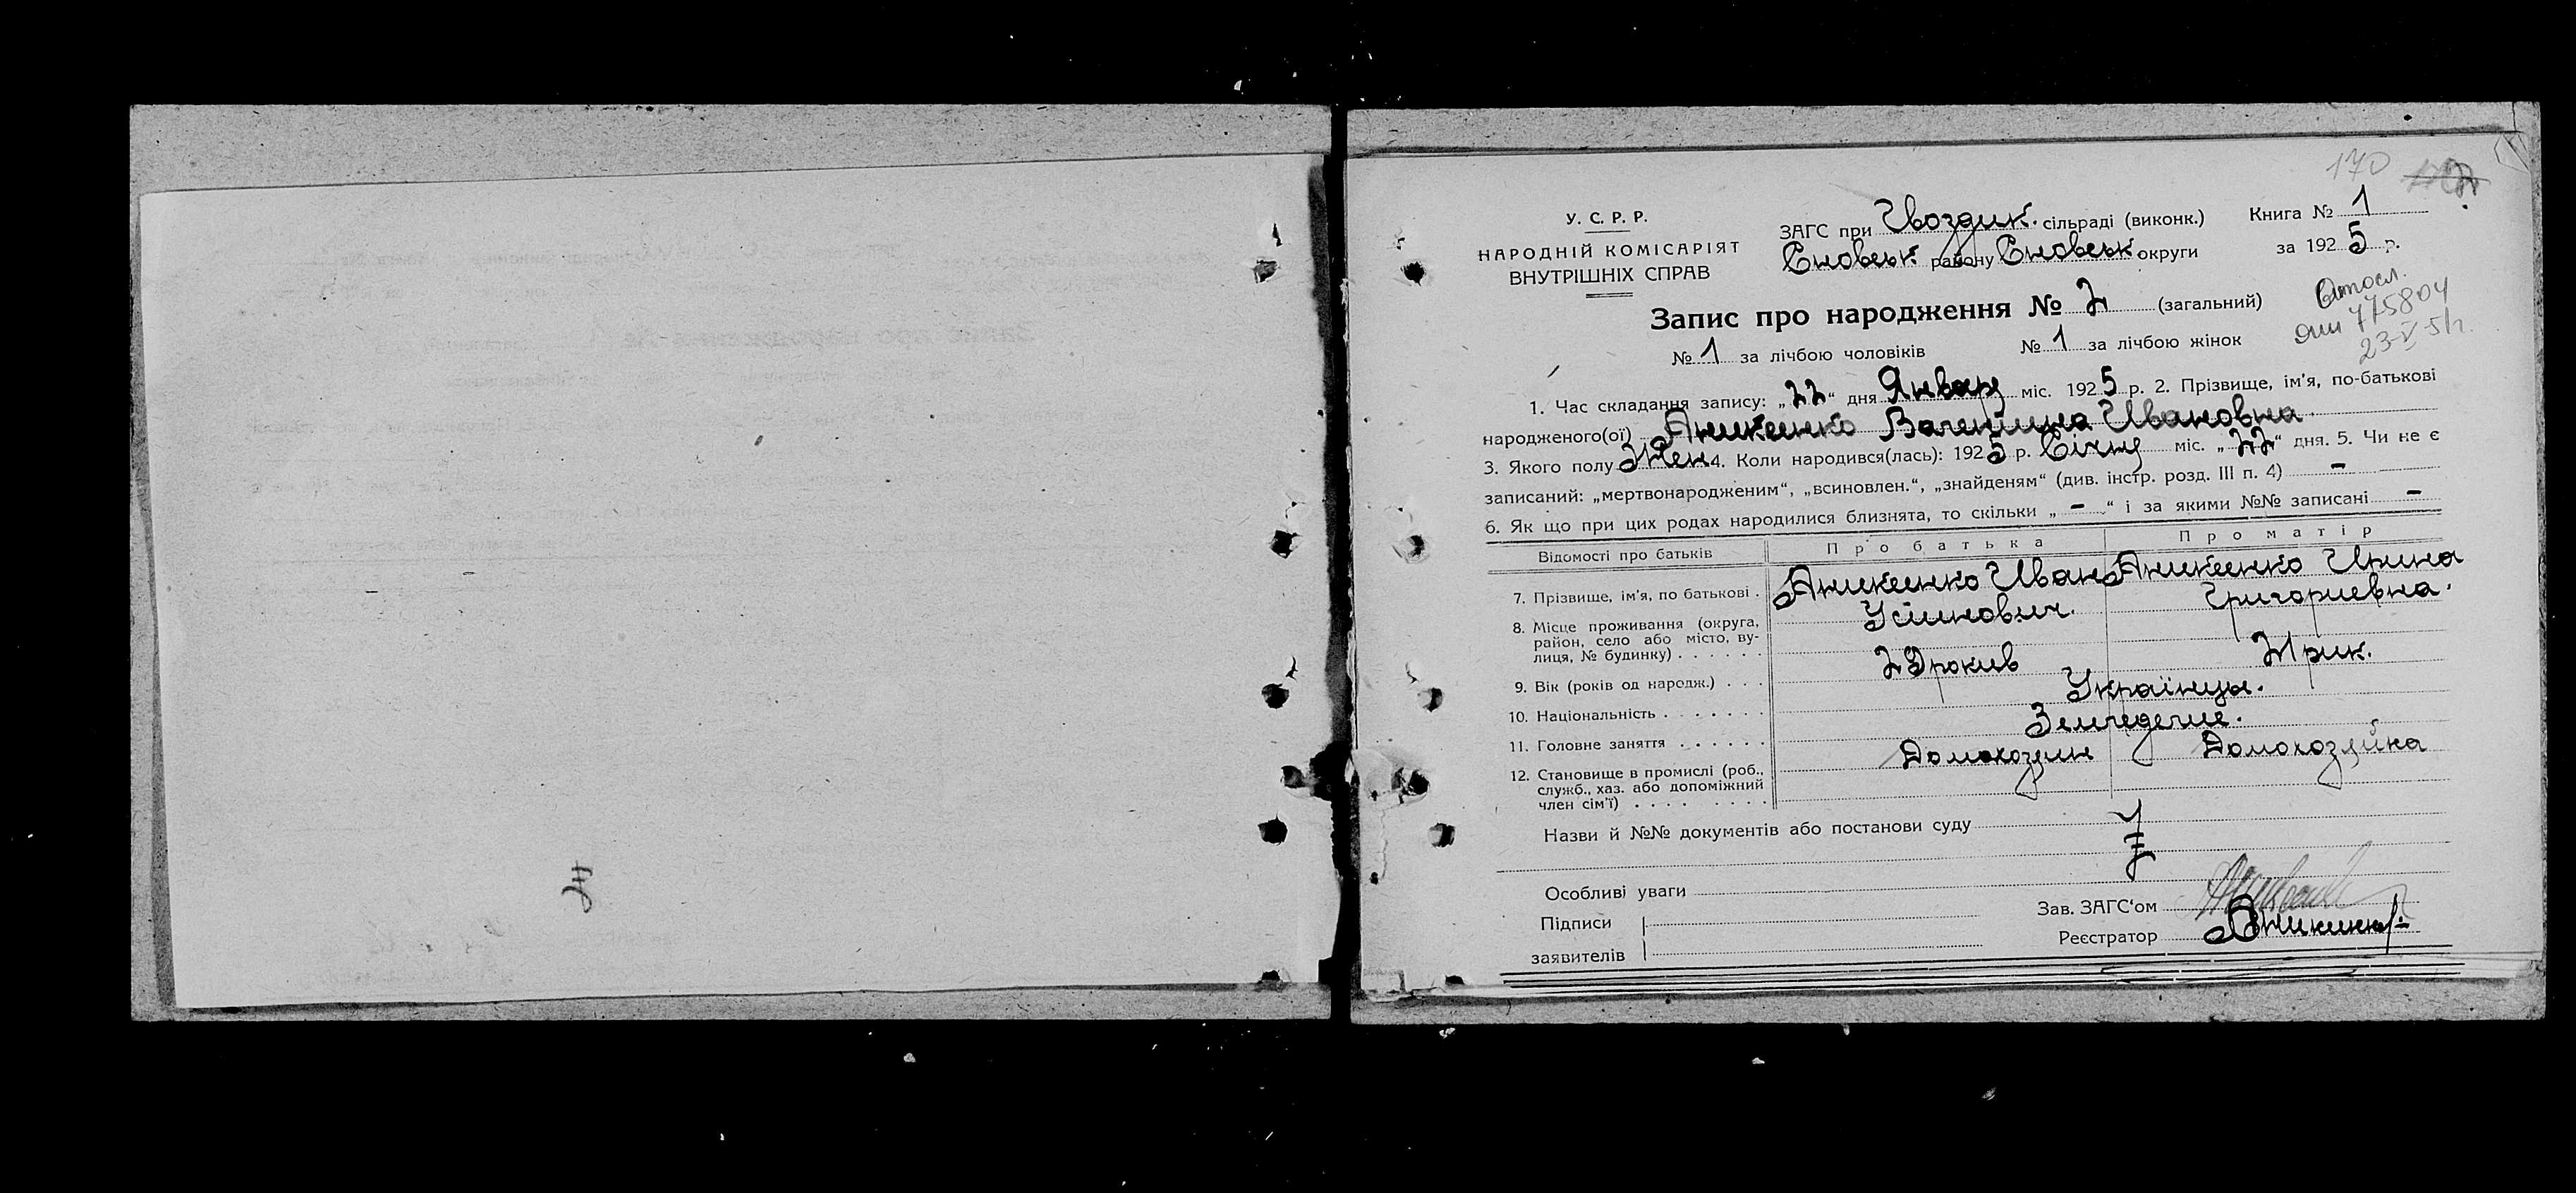 170
У. С. Р. Р.
НАРОДНІЙ КОМІСАРІЯТ
ВНУТРІШНІХ СПРАВ
ЗАГС при Гвоздик. сільраді (виконк.) Книга № 1
Сновськ району Сновськ округи за 1925 р.
Запис про народження № 2 (загальний)
№ 1 за лічбою чоловіків № 1 за лічбою жінок
775804
23-V-51г.
1. Час складання запису: „22“ дня Январ міс. 1925 р. 2. Прізвище, ім’я, по-батькові
народженого(ої) Аникеенко Валентина Ивановна.
3. Якого полу Жен 4. Коли народився(лась): 1925 р. Січня міс. „22“ дня. 5. Чи не є
записаний: „мертвонародженим“, „всиновлен.“, „знайденям“ (див. інстр. розд. III п. 4) -
6. Як що при цих родах народилися близнята, то скільки „ - “ і за якими №№ записані -
Відомості про батьків Про батька Про матір
7. Прізвище, ім’я, по батькові . Аникеенко Иван Аникеенко Ирина
Устинович. Григориевна.
8. Місце проживання (округа,
район, село або місто, ву-
лиця, № будинку) . . . . . .
9. Вік (років од народж.) . . . років рик.
10. Національність . . . . . . . Українцы.
11. Головне заняття . . . . . . Земледелие.
12. Становище в промислі (роб.,
служб., хаз. або допоміжний
член сім’ї) . . . . . . . . Домохозяин Домохозяйка
Назви й №№ документів або постанови суду
Особливі уваги
Підписи
заявителів
Зав. ЗАГС‘ом
Реєстратор